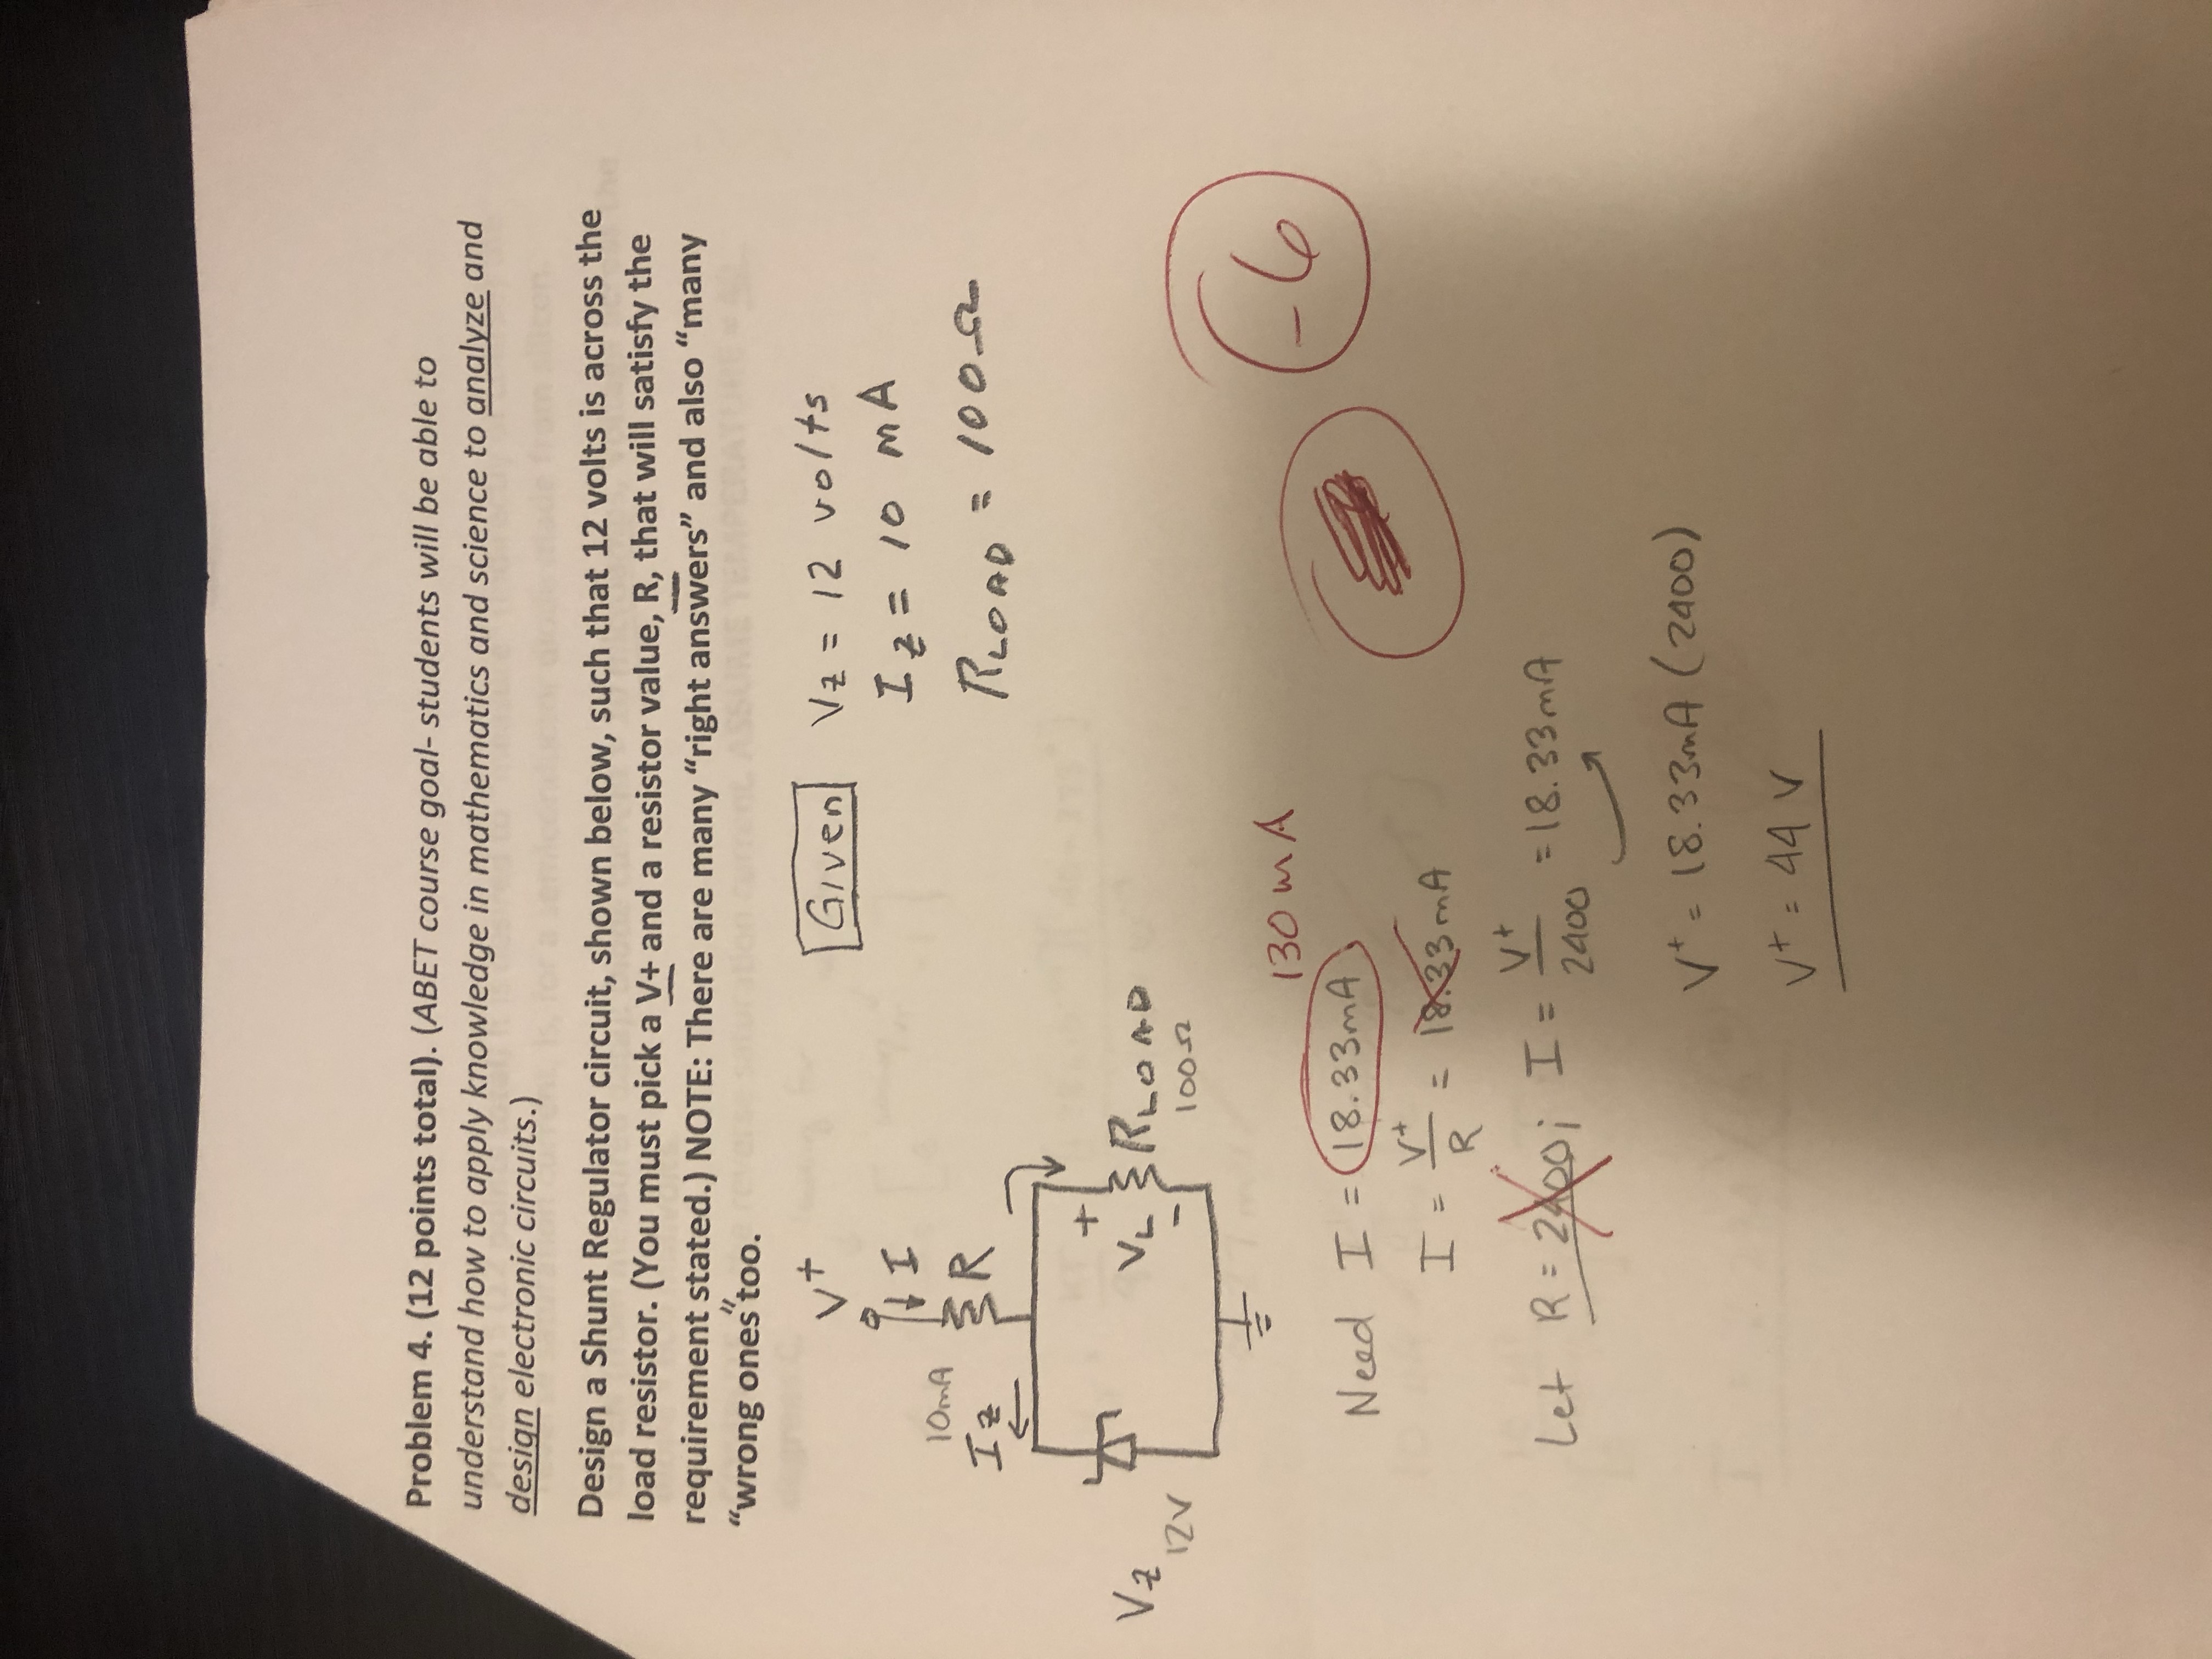 Problem 4. (12 points total). (ABET course goal- students will be able to
understand how to apply knowledge in mathematics and science to analyze and
design electronic circuits.)
Design a Shunt Regulator circuit, shown below, such that 12 volts is across the
load resistor. (You must pick a V+ and a resistor value, R, that will satisfy the
requirement stated.) NOTE: There are many “right answers” and also “many
“wrong ones" too.
V+
I
10mA
Iz
R
Vz
12V
+
VL
-
RLOAD
100Ω
Given
Vz = 12 volts
Iz = 10 mA
RLOAD = 100Ω
130 mA
-6
Need I = 18.33mA
I = V+/R = 18.33mA
Let R = 2400; I = V+/2400 = 18.33mA
V+ = 18.33mA (2400)
V+ = 44 V